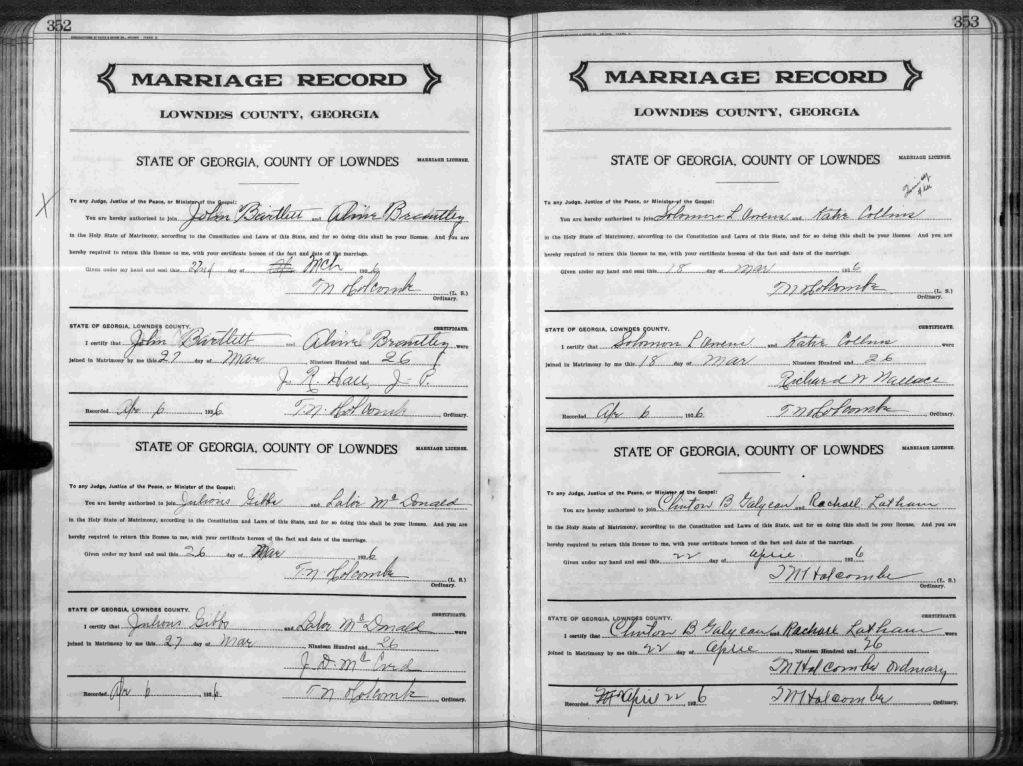 352
MARRIAGE RECORD
LOWNDES COUNTY, GEORGIA
STATE OF GEORGIA, COUNTY OF LOWNDES MARRIAGE LICENSE
To any Judge, Justice of the Peace, or Minister of the Gospel:
You are hereby authorized to join John Bartlett and Aline Brantley
in the Holy State of Matrimony, according to the Constitution and Laws of this State, and for so doing this shall be your license. And you are
hereby required to return this license to me, with your certificate hereon of the fact and date of the marriage.
Given under my hand and seal this 22nd day of Mch 1926
T.N Holcomb (L. S.)
Ordinary.
STATE OF GEORGIA, LOWNDES COUNTY. CERTIFICATE.
I certify that John Bartlett and Aline Brantley were
joined in Matrimony by me this 27 day of Mar Nineteen Hundred and 26
J. R. Hall, J. P.
Recorded Apr 6 1926 T.N Holcomb Ordinary.
STATE OF GEORGIA, COUNTY OF LOWNDES MARRIAGE LICENSE
To any Judge, Justice of the Peace, or Minister of the Gospel:
You are hereby authorized to join Julious Gibbs and Labor McDonald
in the Holy State of Matrimony, according to the Constitution and Laws of this State, and for so doing this shall be your license. And you are
hereby required to return this license to me, with your certificate hereon of the fact and date of the marriage.
Given under my hand and seal this 26 day of Mar 1926
T.N Holcomb (L. S.)
Ordinary.
STATE OF GEORGIA, LOWNDES COUNTY. CERTIFICATE.
I certify that Julious Gibbs and Labor McDonald were
joined in Matrimony by me this 27 day of Mar Nineteen Hundred and 26
J. D. Mc
Recorded Apr 6 1926 T.N Holcomb Ordinary.
353
MARRIAGE RECORD
LOWNDES COUNTY, GEORGIA
STATE OF GEORGIA, COUNTY OF LOWNDES MARRIAGE LICENSE
To any Judge, Justice of the Peace, or Minister of the Gospel:
You are hereby authorized to join Solomon L Owens and Katie Collins
in the Holy State of Matrimony, according to the Constitution and Laws of this State, and for so doing this shall be your license. And you are
hereby required to return this license to me, with your certificate hereon of the fact and date of the marriage.
Given under my hand and seal this 18 day of Mar 1926
T N Holcomb (L. S.)
Ordinary.
STATE OF GEORGIA, LOWNDES COUNTY. CERTIFICATE.
I certify that Solomon L Owens and Katie Collins were
joined in Matrimony by me this 18 day of Mar Nineteen Hundred and 26
Richard W Wallace
Recorded Apr 6 1926 T N Holcomb Ordinary.
STATE OF GEORGIA, COUNTY OF LOWNDES MARRIAGE LICENSE
To any Judge, Justice of the Peace, or Minister of the Gospel:
You are hereby authorized to join Clinton B Galyean and Rachall Latham
in the Holy State of Matrimony, according to the Constitution and Laws of this State, and for so doing this shall be your license. And you are
hereby required to return this license to me, with your certificate hereon of the fact and date of the marriage.
Given under my hand and seal this 22 day of Aprie 1926
T N Holcombe (L. S.)
Ordinary.
STATE OF GEORGIA, LOWNDES COUNTY. CERTIFICATE.
I certify that Clinton B Galyean and Rachall Latham were
joined in Matrimony by me this 22 day of Aprie Nineteen Hundred and 26
T N Holcombe Ordinary
Recorded April 22 1926 T N Holcombe Ordinary.